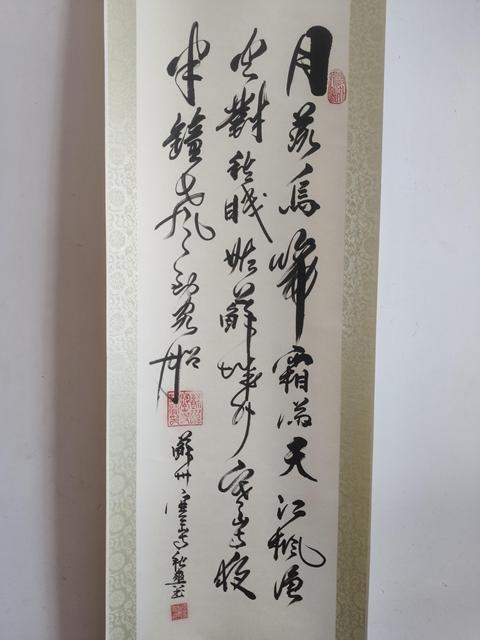 月落烏啼霜滿天江楓漁
火對愁眠姑蘇城外寒山寺夜
半鐘聲到客船
蘇州寒山寺秋爽书